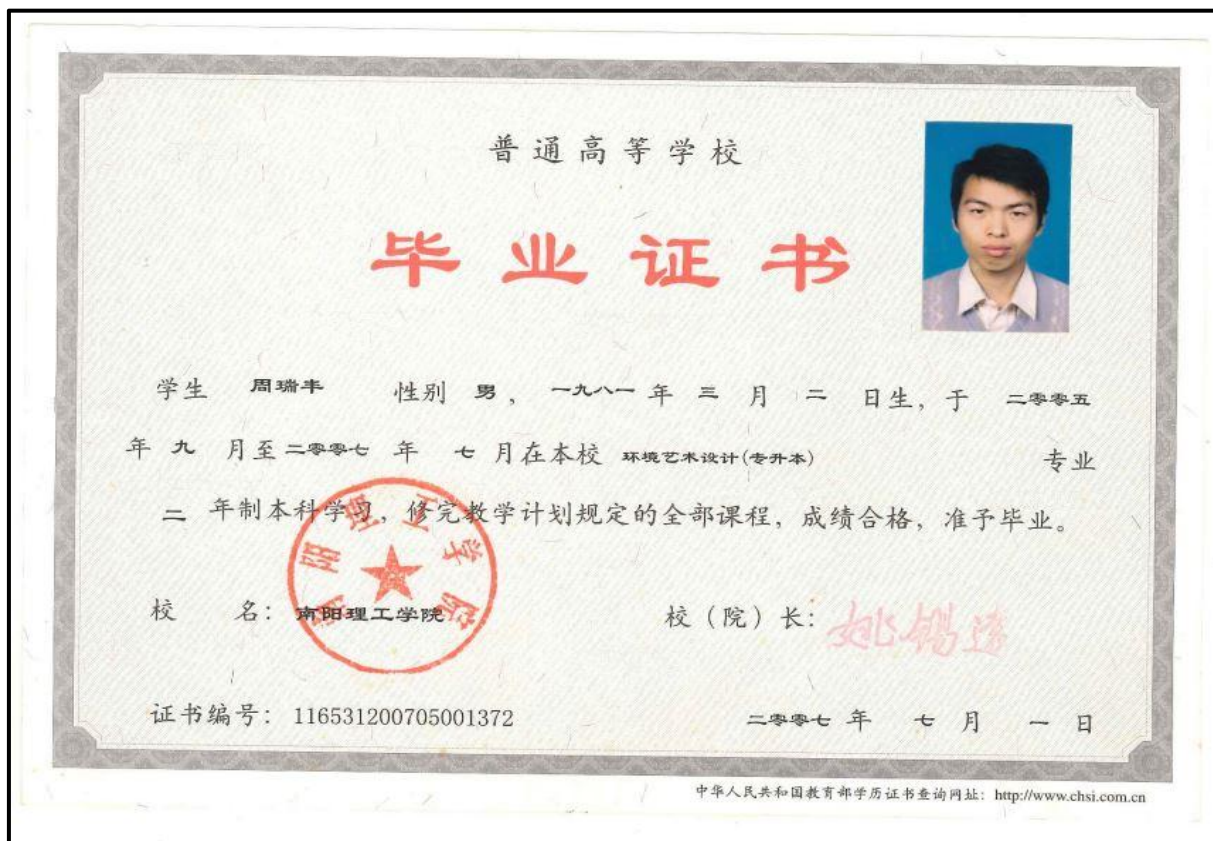 普通高等学校
毕业证书
学生 周瑞丰 性别 男，一九八一年 三 月 二 日生，于 二零零五
年 九 月至二零零七 年 七 月在本校 环境艺术设计(专升本) 专业
二 年制本科学习，修完教学计划规定的全部课程，成绩合格，准予毕业。
南阳理工学院
校 名：南阳理工学院 校（院）长：姚锡远
证书编号：116531200705001372 二零零七 年 七 月 一 日
中华人民共和国教育部学历证书查询网址：http://www.chsi.com.cn